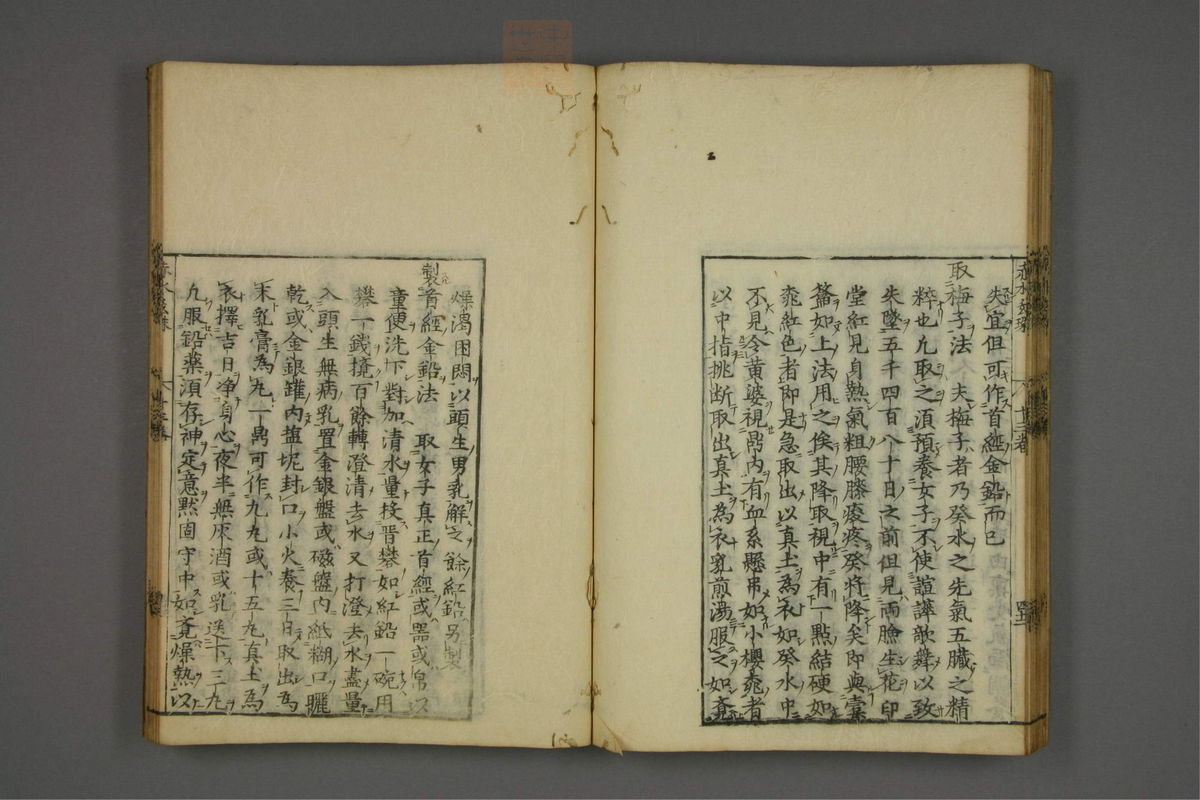 失宜但可作首經金鉛而已
取梅子法　夫梅子者乃癸水之先氣五臟之精
粹也凡取之須預養女子不使諠譁歌舞以致
失墜五千四百八十日之前但見兩臉生花印
堂紅見身熱氣粗腰膝痠疼癸將降矣即與
如上法用之俟其降取視中有一點結硬如
紅色者即是急取出以真土為衣如癸水中
不見令黃婆視鼎內有血系懸吊如小櫻者
以中指挑斷取出真土為衣乳煎湯服之如
燥渴困悶以頭生男乳解之餘紅鉛另製
製首經金鉛法　取女子真正首經或器或帛以
童便洗下對加清水量投晋礬如紅鉛一碗用
礬一錢攪百餘轉澄清去水又打澄去水盡量
入頭生無病乳置金銀盤或磁盤內紙糊口曬
乾或金銀罐內塩坭封口火養三日取出為
末乳膏為丸一鼎可作九丸或十五丸真土為
衣擇吉日净身心夜半無灰酒或乳送下三丸
凡服鉛藥須存神定意默固守中如覺燥熱以